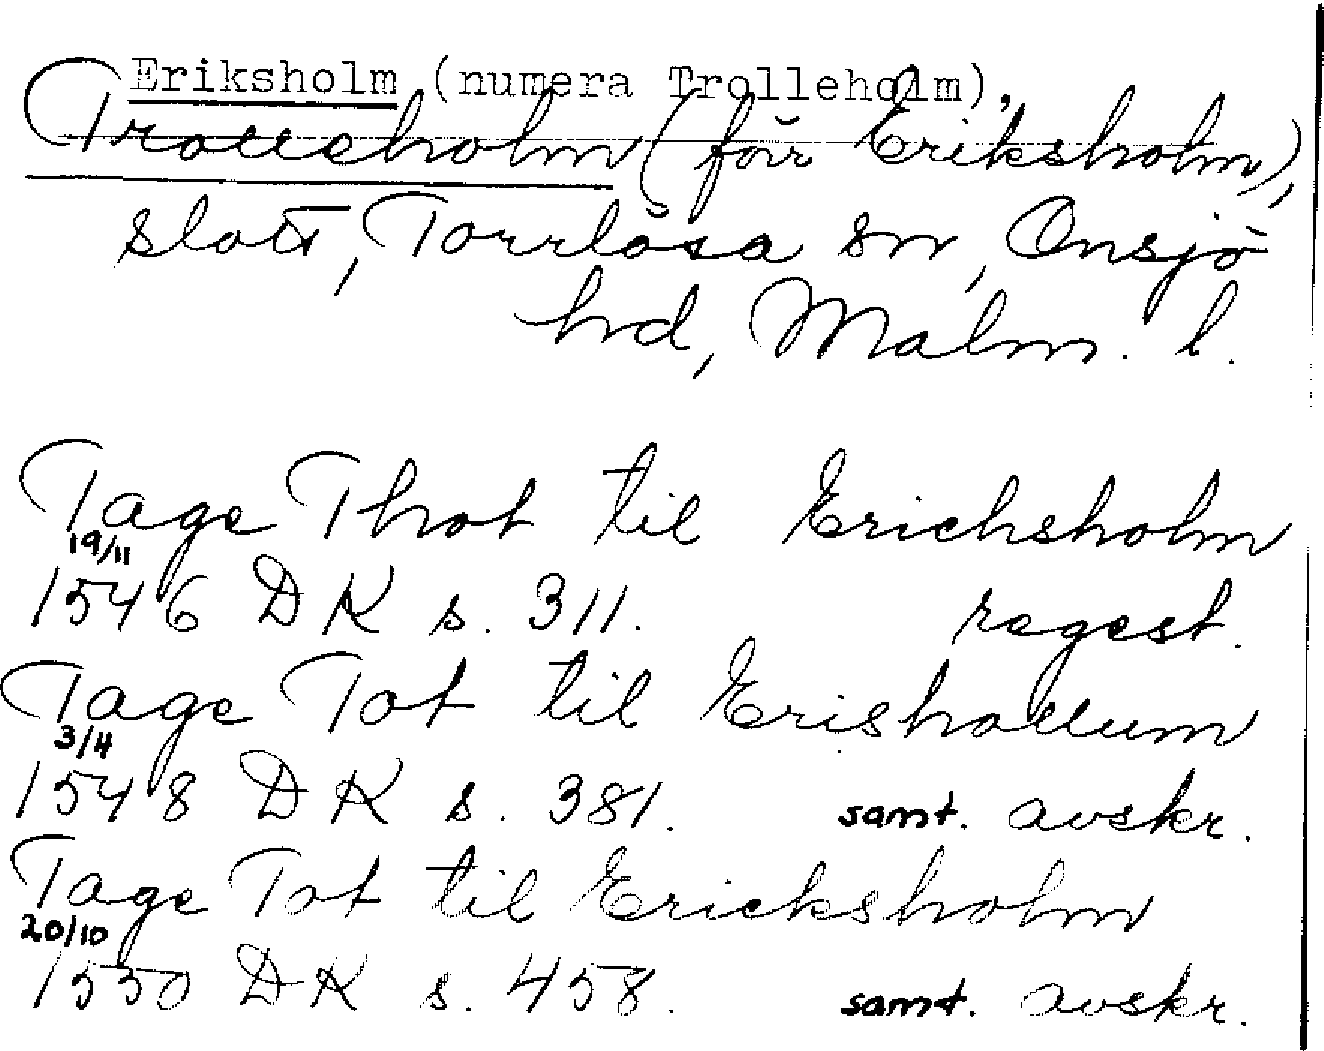 Eriksholm (numera Trolleholm),
Trolleholm (förr Eriksholm),
slott, Torrlösa sn, Onsjö
hd, Malm. l.
Tage Thot til Erichsholm
19/11
1546 DK s. 311. regest.
Tage Tot til Erishollum
3/4
1548 DK s. 381. samt. avskr.
Tage Tot til Ericksholm
20/10
1550 DK s. 458. samt. avskr.